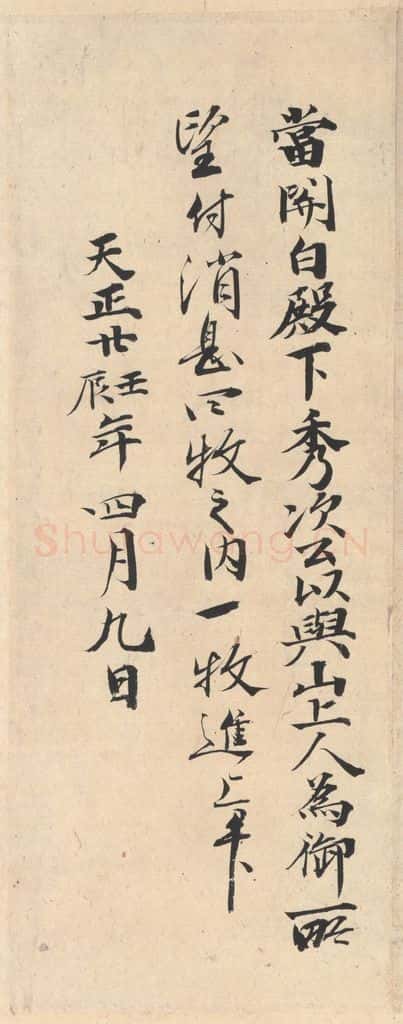 當関白殿下秀次公以與山上人為御所
望付消息四牧之内一牧進上畢
天正廿壬辰年四月九日
Shufawang.CN